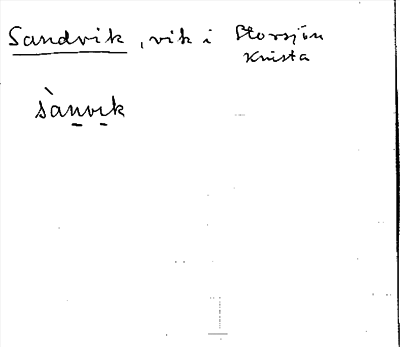 Sandvik, vik i Storsjön
Knista
sànvik